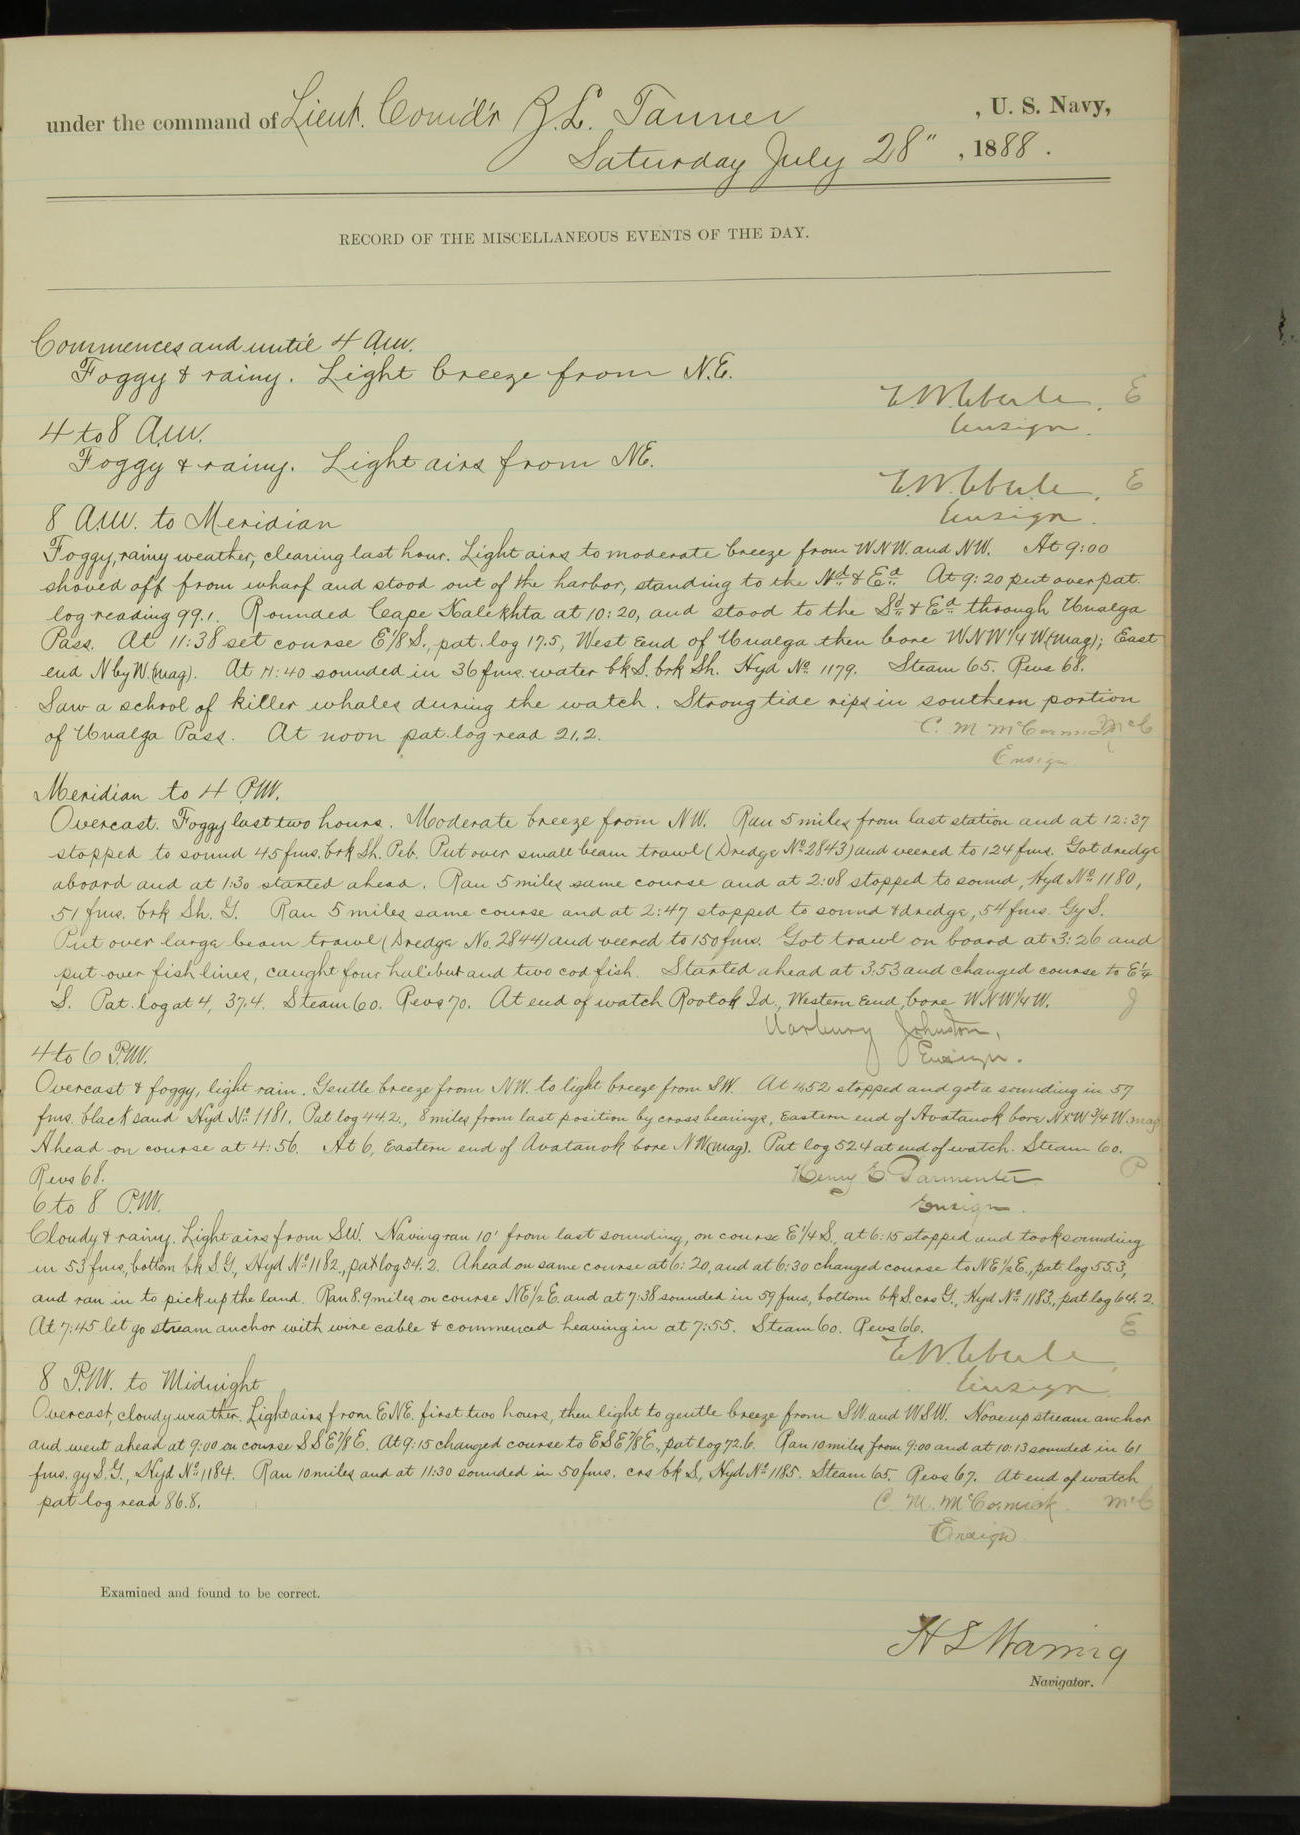 under the command of Lieut. Comd'r Z.L. Tanner , U. S. Navy,
Saturday July 28" , 1888.
RECORD OF THE MISCELLANEOUS EVENTS OF THE DAY.
Commences and until 4 A.M.
Foggy & rainy. Light breeze from N.E.
E.W. Eberle. E
Ensign.
4 to 8 A.M.
Foggy & rainy. Light airs from NE.
E.W. Eberle. E
Ensign.
8 A.M. to Meridian
Foggy, rainy weather, clearing last hour. Light airs to moderate breeze from WNW. and NW. At 9:00
shoved off from wharf and stood out of the harbor, standing to the Nd & Ed. At 9:20 put over pat.
log reading 99.1. Rounded Cape Kalekhta at 10:20, and stood to the Sd & Ed through Unalga
Pass. At 11:38 set course E 1/8 S., pat. log 17.5, West End of Unalga then bore WNW 1/4 W (mag); East
end N by W. (mag). At 11:40 sounded in 36 fms. water bk S. brk Sh. Hyd No. 1179. Steam 65. Revs 68.
Saw a school of killer whales during the watch. Strong tide rips in southern portion
of Unalga Pass. At noon pat. log read 21.2.
C. M. McCormick McC
Ensign
Meridian to 4 P.M.
Overcast. Foggy last two hours. Moderate breeze from NW. Ran 5 miles from last station and at 12:37
stopped to sound 45 fms. brk Sh. Peb. Put over small beam trawl (Dredge No. 2843) and veered to 124 fms. Got dredge
aboard and at 1:30 started ahead. Ran 5 miles same course and at 2:08 stopped to sound, Hyd No. 1180,
51 fms. brk Sh. G. Ran 5 miles same course and at 2:47 stopped to sound & dredge, 54 fms. Gy S.
Put over large beam trawl (Dredge No. 2844) and veered to 150 fms. Got trawl on board at 3:26 and
put over fish lines, caught four halibut and two cod fish. Started ahead at 3:53 and changed course to E 1/4
S. Pat. log at 4, 37.4. Steam 60. Revs 70. At end of watch Rootok Id., Western End, bore WNW 1/4 W. J
Marbury Johnston,
Ensign.
4 to 6 P.M.
Overcast & foggy, light rain. Gentle breeze from NW. to light breeze from SW. At 4.52 stopped and got a sounding in 57
fms. black sand Hyd No. 1181. Pat log 44.2, 8 miles from last position by cross bearings, Eastern end of Avatanok bore NxW 3/4 W. mag
Ahead on course at 4:56. At 6, Eastern end of Avatanok bore NW (mag). Pat log 52.4 at end of watch. Steam 60.
Revs 68.
Henry E. Parmenter P
Ensign.
6 to 8 P.M.
Cloudy & rainy. Light airs from SW. Having ran 10' from last sounding, on course E 1/4 S, at 6:15 stopped and took sounding
in 53 fms, bottom bk S G, Hyd No. 1182, pat log 54.2. Ahead on same course at 6:20, and at 6:30 changed course to NE 1/2 E, pat. log 55.3,
and ran in to pick up the land. Ran 8.9 miles on course NE 1/2 E. and at 7:38 sounded in 59 fms, bottom bk S. crs G., Hyd No. 1183, pat log 64.2.
At 7:45 let go stream anchor with wire cable & commenced heaving in at 7:55. Steam 60. Revs 66. E
E.W. Eberle,
Ensign.
8 P.M. to Midnight
Overcast, cloudy weather. Light airs from ENE. first two hours, then light to gentle breeze from SW. and WSW. Hove up stream anchor
and went ahead at 9:00 on course SSE 7/8 E. At 9:15 changed course to ESE 7/8 E, pat log 72.6. Ran 10 miles from 9:00 and at 10:13 sounded in 61
fms. gy S. G., Hyd No. 1184. Ran 10 miles and at 11:30 sounded in 50 fms. crs bk S, Hyd No. 1185. Steam 65. Revs 67. At end of watch
pat log read 86.8.
C. M. McCormick McC
Ensign
Examined and found to be correct.
H S Waring
Navigator.